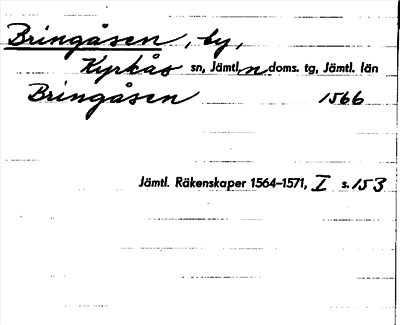 Bringåsen, by,
Kyrkås sn, Jämtl. n doms. tg, Jämtl. län
Bringåsen 1566
Jämtl. Räkenskaper 1564–1571, I s. 153